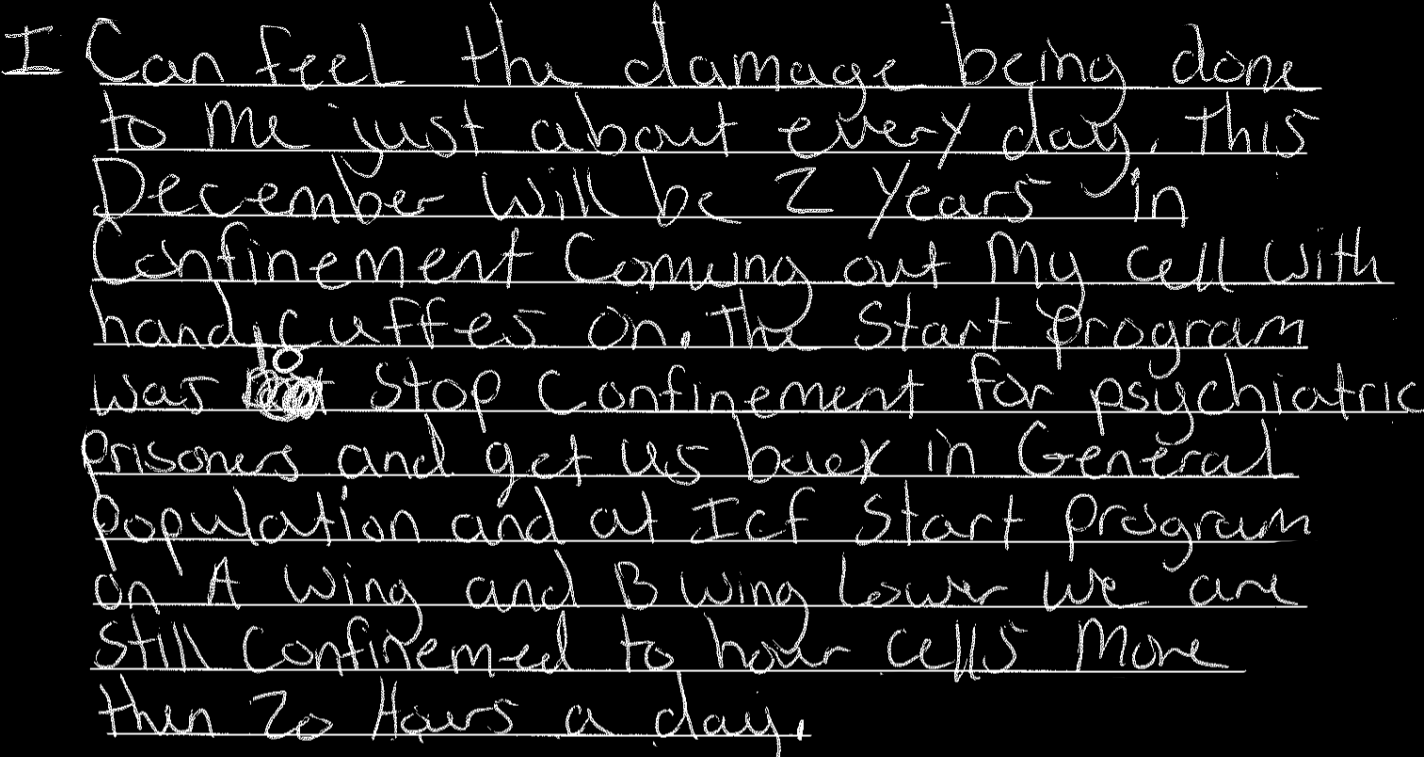 I Can feel the damage being done
to me just about every day. This
December will be 2 years in
Confinement Comeing out My cell with
handcuffes on. The Start program
was to stop Confinement for psychiatric
prisoners and get us back in General
population and at Icf Start program
on A wing and B wing Lower we are
still Confinemed to hour cells More
then 20 Hours a day.